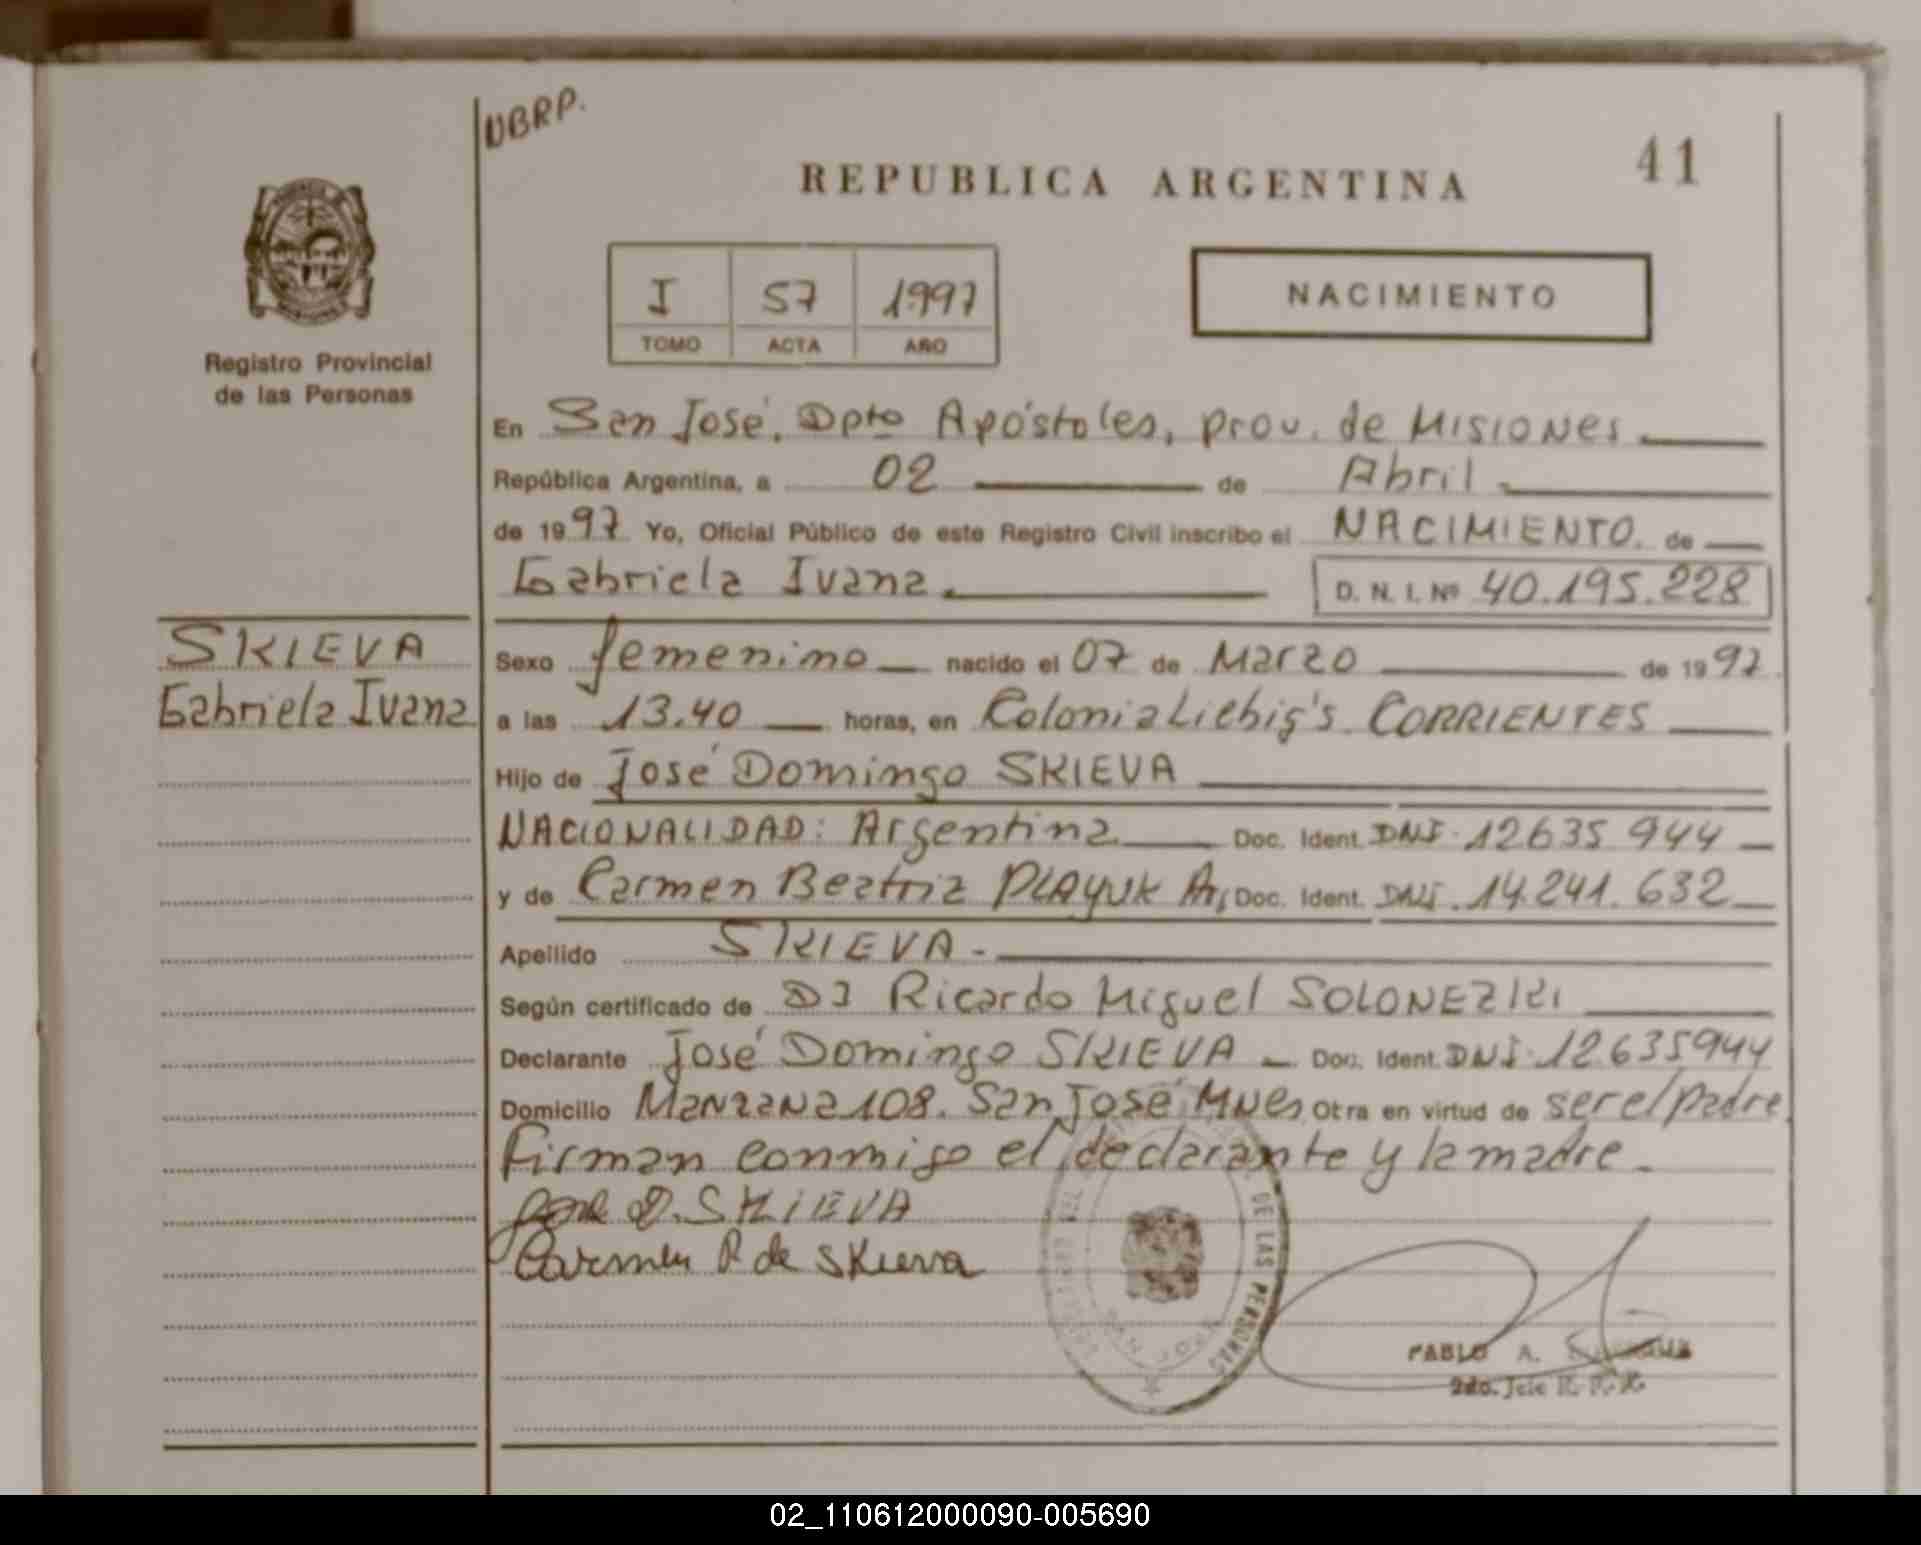 DBRP.
41
REPUBLICA ARGENTINA
Registro Provincial
de las Personas
I 57 1997
TOMO ACTA AÑO
NACIMIENTO
En San José. Dpto Apóstoles, prov. de Misiones
República Argentina, a 02 de Abril
de 1997 Yo, Oficial Público de este Registro Civil inscribo el NACIMIENTO. de
Gabriela Ivana D. N. I. Nº 40.195.228
SKIEVA
Gabriela Ivana
Sexo femenino nacido el 07 de Marzo de 1997
a las 13.40 horas, en Colonia Liebig's. CORRIENTES
Hijo de José Domingo SKIEVA
NACIONALIDAD: Argentina Doc. Ident. DNI. 12635 944
y de Carmen Beatriz PLAYUK Ar, Doc. Ident. DNI. 14.241.632
Apellido SKIEVA -
Según certificado de DJ Ricardo Miguel SOLONEZKI
Declarante José Domingo SKIEVA Doc. Ident. DNI. 12.635944
Domicilio Manzana 108. San José Mnes, Otra en virtud de ser el padre.
Firman conmigo el declarante y la madre.
José D. SKIEVA
Carmen P. de Skieva
DE LAS PERSONAS
SAN JOSE
PABLO A.
2do. Jefe R. P. P.
02_110612000090-005690